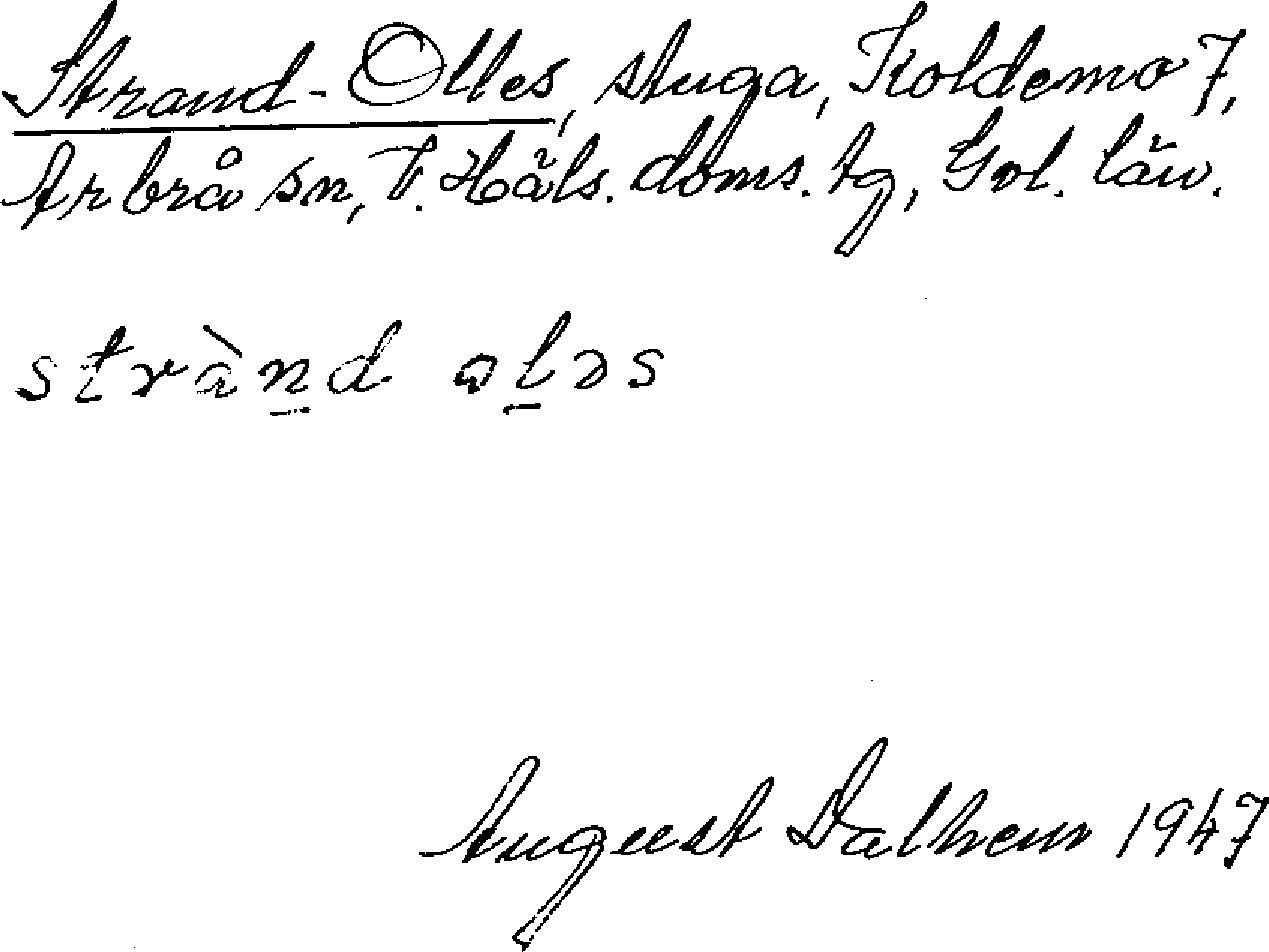 Strand-Olles, stuga, Koldemo 7,
Arbrå sn, V. Häls. doms. tg, Gvl. län.
strànd ɷləs
August Dalhem 1947